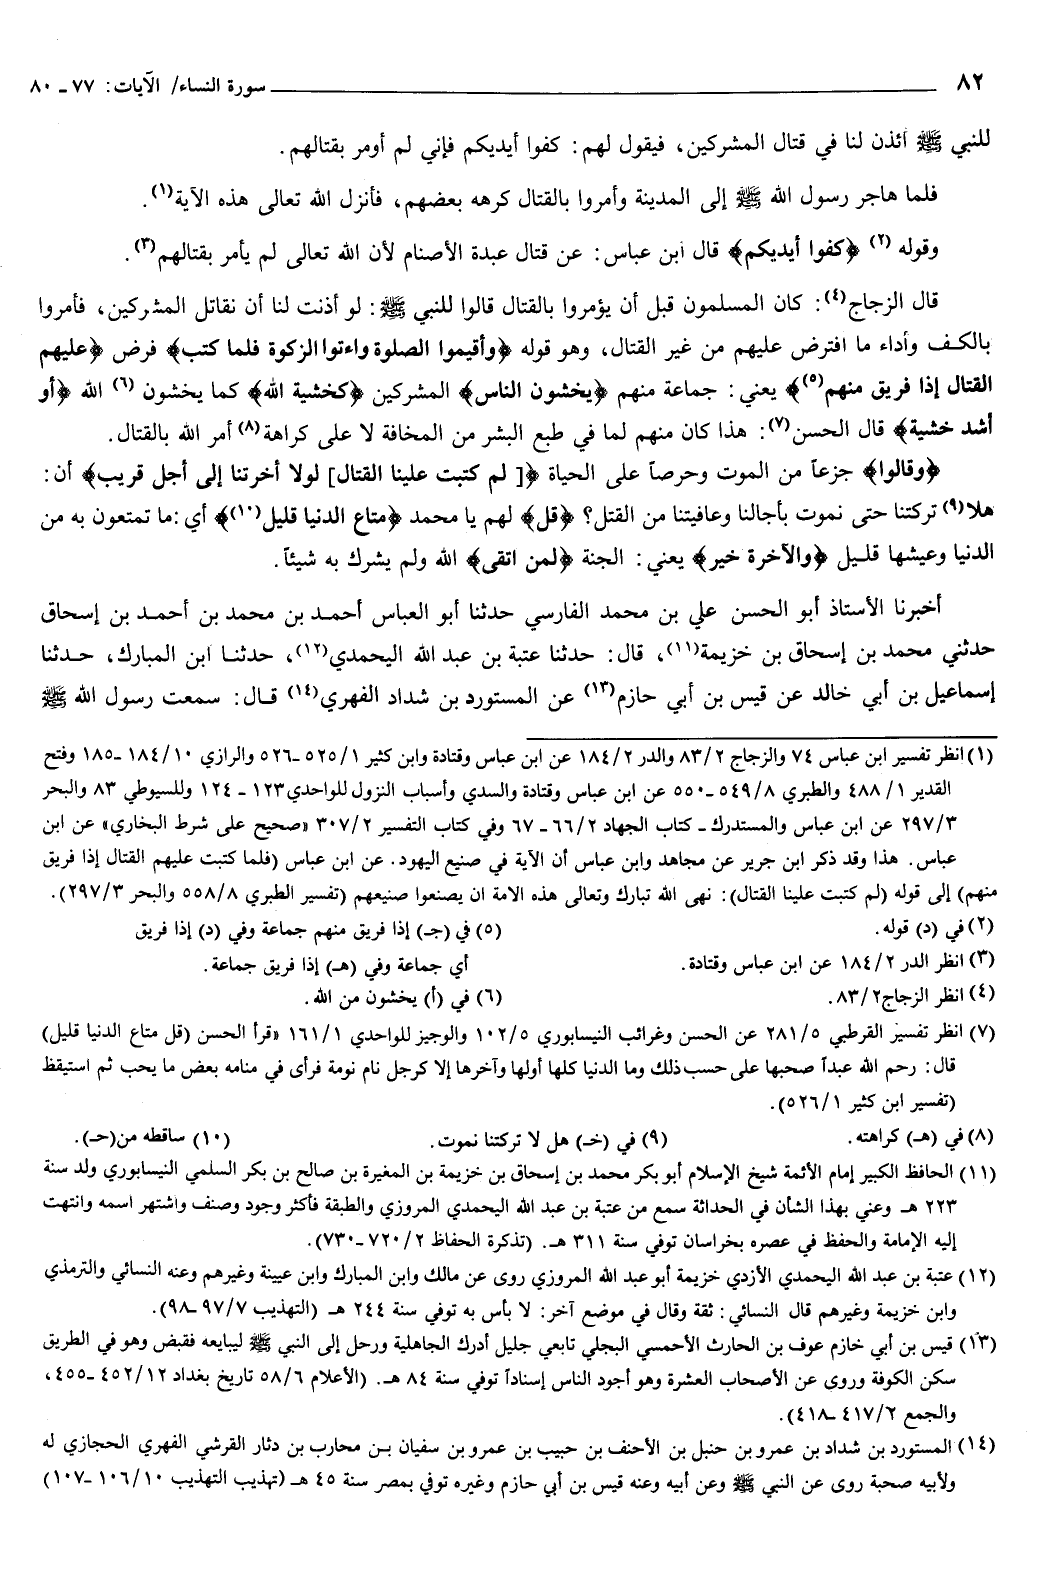 ٨٢ سورة النساء/ الآيات: ٧٧ ـ ٨٠
للنبي ﷺ أئذن لنا في قتال المشركين، فيقول لهم: كفوا أيديكم فإني لم أومر بقتالهم.
فلما هاجر رسول الله ﷺ إلى المدينة وأمروا بالقتال كرهه بعضهم، فأنزل الله تعالى هذه الآية(١).
وقوله (٢) ﴿كفوا أيديكم﴾ قال ابن عباس: عن قتال عبدة الأصنام لأن الله تعالى لم يأمر بقتالهم(٣).
قال الزجاج(٤): كان المسلمون قبل أن يؤمروا بالقتال قالوا للنبي ﷺ: لو أذنت لنا أن نقاتل المشركين، فأمروا
بالكف وأداء ما افترض عليهم من غير القتال، وهو قوله ﴿وأقيموا الصلوة واءتوا الزكوة فلما كتب﴾ فرض ﴿عليهم
القتال إذا فريق منهم(٥)﴾ يعني: جماعة منهم ﴿يخشون الناس﴾ المشركين ﴿كخشية الله﴾ كما يخشون (٦) الله ﴿أو
أشد خشية﴾ قال الحسن(٧): هذا كان منهم لما في طبع البشر من المخافة لا على كراهة(٨) أمر الله بالقتال.
﴿وقالوا﴾ جزعاً من الموت وحرصاً على الحياة ﴿[ لم كتبت علينا القتال] لولا أخرتنا إلى أجل قريب﴾ أن:
هلا(٩) تركتنا حتى نموت بأجالنا وعافيتنا من القتل؟ ﴿قل﴾ لهم يا محمد ﴿متاع الدنيا قليل(١٠)﴾ أي :ما تمتعون به من
الدنيا وعيشها قليل ﴿والآخرة خير﴾ يعني: الجنة ﴿لمن اتقى﴾ الله ولم يشرك به شيئاً.
أخبرنا الأستاذ أبو الحسن علي بن محمد الفارسي حدثنا أبو العباس أحمد بن محمد بن أحمد بن إسحاق
حدثني محمد بن إسحاق بن خزيمة(١١)، قال: حدثنا عتبة بن عبد الله اليحمدي(١٢)، حدثنا ابن المبارك، حدثنا
إسماعيل بن أبي خالد عن قيس بن أبي حازم(١٣) عن المستورد بن شداد الفهري(١٤) قال: سمعت رسول الله ﷺ
(١) انظر تفسير ابن عباس ٧٤ والزجاج ٨٣/٢ والدر ١٨٤/٢ عن ابن عباس وقتادة وابن كثير ٥٢٥/١ ـ٥٢٦ والرازي ١٨٤/١٠ ـ١٨٥ وفتح
القدير ٤٨٨/١ والطبري ٥٤٩/٨ ـ٥٥٠ عن ابن عباس وقتادة والسدي وأسباب النزول للواحدي١٢٣ ـ ١٢٤ وللسيوطي ٨٣ والبحر
٢٩٧/٣ عن ابن عباس والمستدرك ـ كتاب الجهاد ٦٦/٢ ـ ٦٧ وفي كتاب التفسير ٣٠٧/٢ «صحيح على شرط البخاري» عن ابن
عباس. هذا وقد ذكر ابن جرير عن مجاهد وابن عباس أن الآية في صنيع اليهود. عن ابن عباس (فلما كتبت عليهم القتال إذا فريق
منهم) إلى قوله (لم كتبت علينا القتال): نهى الله تبارك وتعالى هذه الامة ان يصنعوا صنيعهم (تفسير الطبري ٥٥٨/٨ والبحر ٢٩٧/٣).
(٢) في (د) قوله. (٥) في (جـ) إذا فريق منهم جماعة وفي (د) إذا فريق
(٣) انظر الدر ١٨٤/٢ عن ابن عباس وقتادة. أي جماعة وفي (هـ) إذا فريق جماعة.
(٤) انظر الزجاج٨٣/٢. (٦) في (أ) يخشون من الله.
(٧) انظر تفسير القرطبي ٢٨١/٥ عن الحسن وغرائب النيسابوري ١٠٢/٥ والوجيز للواحدي ١٦١/١ «قرأ الحسن (قل متاع الدنيا قليل)
قال: رحم الله عبداً صحبها على حسب ذلك وما الدنيا كلها أولها وآخرها إلا كرجل نام نومة فرأى في منامه بعض ما يحب ثم استيقظ
(تفسير ابن كثير ٥٢٦/١).
(٨) في (هـ) كراهته. (٩) في (خـ) هل لا تركتنا نموت. (١٠) ساقطه من(حـ).
(١١) الحافظ الكبير إمام الأئمة شيخ الإسلام أبو بكر محمد بن إسحاق بن خزيمة بن المغيرة بن صالح بن بكر السلمي النيسابوري ولد سنة
٢٢٣ هـ وعني بهذا الشأن في الحداثة سمع من عتبة بن عبد الله اليحمدي المروزي والطبقة فأكثر وجود وصنف واشتهر اسمه وانتهت
إليه الإمامة والحفظ في عصره بخراسان توفي سنة ٣١١ هـ. (تذكرة الحفاظ ٧٢٠/٢ ـ٧٣٠).
(١٢) عتبة بن عبد الله اليحمدي الأزدي خزيمة أبو عبد الله المروزي روى عن مالك وابن المبارك وابن عيينة وغيرهم وعنه النسائي والترمذي
وابن خزيمة وغيرهم قال النسائي: ثقة وقال في موضع آخر: لا بأس به توفي سنة ٢٤٤ هـ (التهذيب ٩٧/٧ ـ٩٨).
(١٣) قيس بن أبي خازم عوف بن الحارث الأحمسي البجلي تابعي جليل أدرك الجاهلية ورحل إلى النبي ﷺ ليبايعه فقبض وهو في الطريق
سكن الكوفة وروى عن الأصحاب العشرة وهو أجود الناس إسناداً توفي سنة ٨٤ هـ. (الأعلام ٥٨/٦ تاريخ بغداد ٤٥٢/١٢ ـ٤٥٥،
والجمع ٤١٧/٢ ـ٤١٨).
(١٤) المستورد بن شداد بن عمرو بن حنبل بن الأحنف بن حبيب بن عمرو بن سفيان بن محارب بن دثار القرشي الفهري الحجازي له
ولأبيه صحبة روى عن النبي ﷺ وعن أبيه وعنه قيس بن أبي حازم وغيره توفي بمصر سنة ٤٥ هـ (تهذيب التهذيب ١٠٦/١٠ ـ١٠٧)